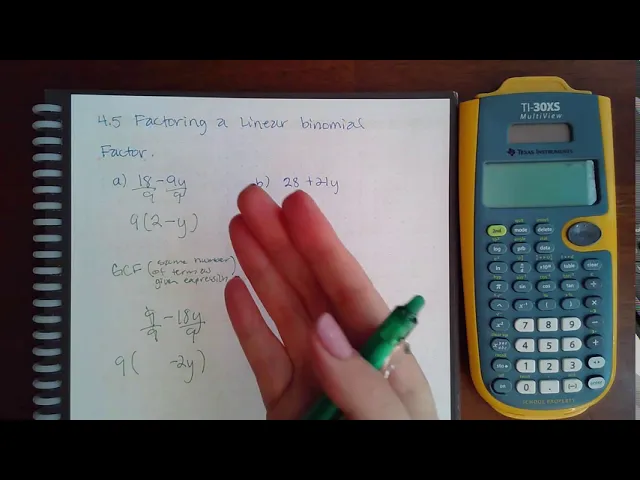 4.5 Factoring a Linear binomial
Factor.
a) 18 - 9y
9 9
b) 28 + 21y
9(2 - y)
GCF (same number
of terms as
given expression)
9 - 18y
9 9
9( -2y)
TI-30XS
MultiView
TEXAS INSTRUMENTS
2nd mode delete
log prb data
ln n/d x10ⁿ table clear
π sin cos tan ÷
^ x⁻¹ ( ) ×
x² 7 8 9 −
4 5 6 +
sto→ 1 2 3
on 0 . (−) enter
SCHOOL PROPERTY